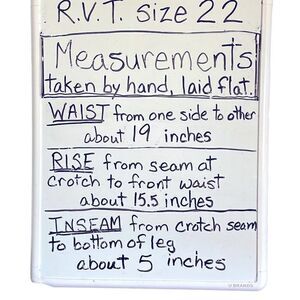 R.V.T. size 22
Measurements
taken by hand, laid flat.
WAIST from one side to other
about 19 inches
RISE from seam at
crotch to front waist
about 15.5 inches
INSEAM from crotch seam
to bottom of leg
about 5 inches
U BRANDS